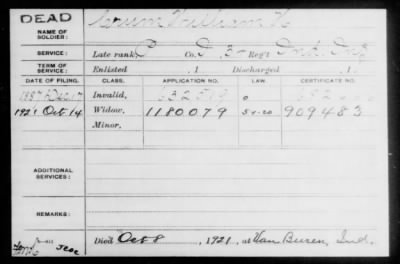 DEAD
NAME OF SOLDIER: William H
SERVICE: Late rank, Co. Reg't Ind. Inf
TERM OF SERVICE: Enlisted , 1 Discharged , 1 .
DATE OF FILING. CLASS. APPLICATION NO. LAW. CERTIFICATE NO.
1887 Dec 17 Invalid,
1921 Oct 14 Widow, 1180079 5-1-20 909483
Minor,
ADDITIONAL SERVICES:
REMARKS:
Died Oct 8, 1921, at Van Buren, Ind.